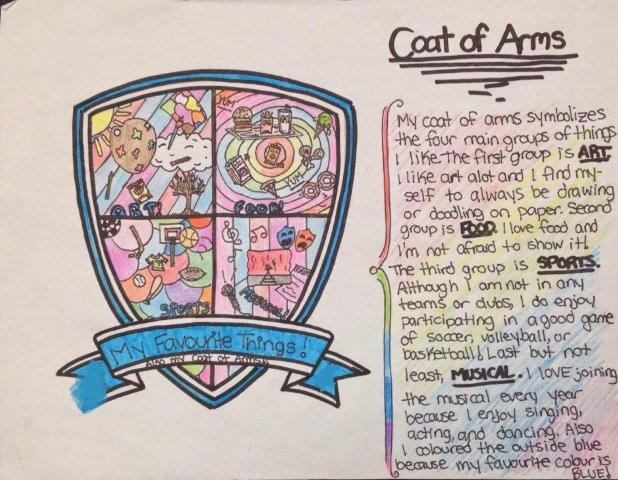 Coat of Arms
My coat of arms symbolizes
the four main groups of things
I like. The first group is ART.
I like art alot and I find my-
self to always be drawing
or doodling on paper. Second
group is FOOD. I love food and
I'm not afraid to show it!
The third group is SPORTS.
Although I am not in any
teams or clubs, I do enjoy
participating in a good game
of soccer, volleyball, or
basketball! Last but not
least, MUSICAL. I lOVE joining
the musical every year
because I enjoy singing,
acting, and dancing. Also
I coloured the outside blue
because my favourite colour is
BLUE!
YUM
YUM
ART!
FOOD!
SPORTS
MUSICAL!
My Favourite Things!
Also my Coat of Arms!!